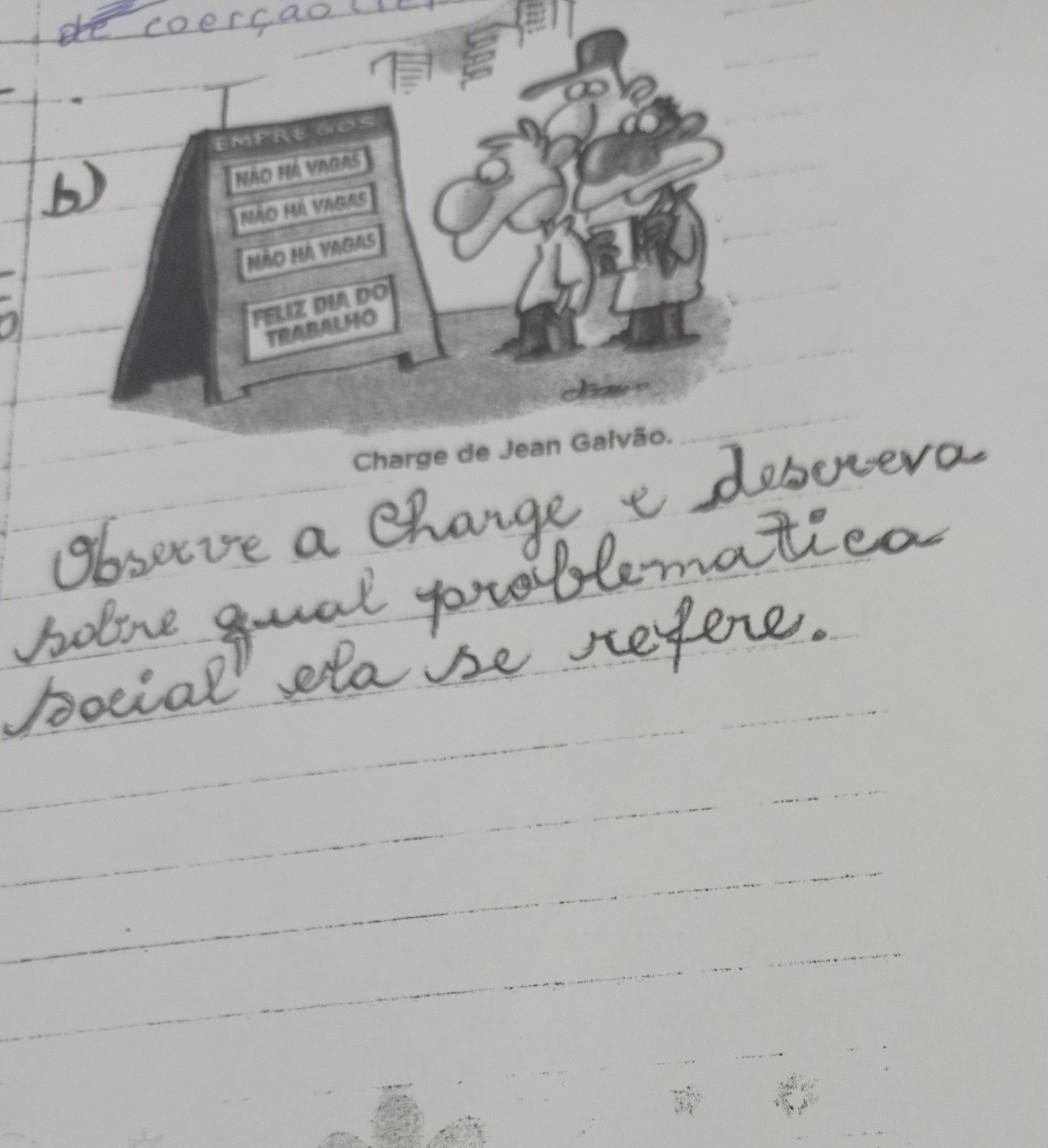 de coerção
b)
EMPREGOS
NÃO HÁ VAGAS
NÃO HÁ VAGAS
NÃO HÁ VAGAS
FELIZ DIA DO
TRABALHO
Charge de Jean Galvão.
Observe a Charge e descreva
sobre qual problematica
social ela se refere.